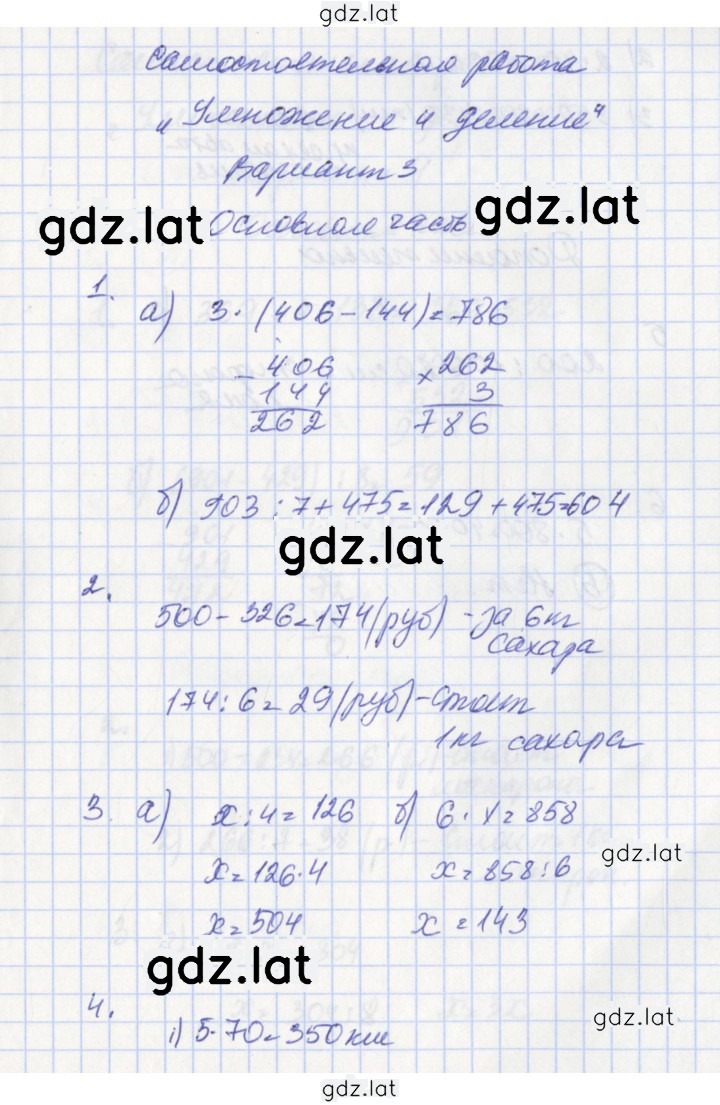 gdz.lat
Самостоятельная работа
„Умножение и деление"
Вариант 3
gdz.lat
gdz.lat
Основная часть
1.
а) 3·(406-144)=786
- 406
144
262
× 262
3
786
б) 903:7+475=129+475=604
gdz.lat
2.
500-326=174(руб) - за 6кг
сахара
174:6=29(руб)-стоит
1кг сахара
3. а) x:4=126 б) 6·x=858
gdz.lat
x=126·4 x=858:6
x=504 x=143
gdz.lat
4.
gdz.lat
1) 5·70=350км
gdz.lat